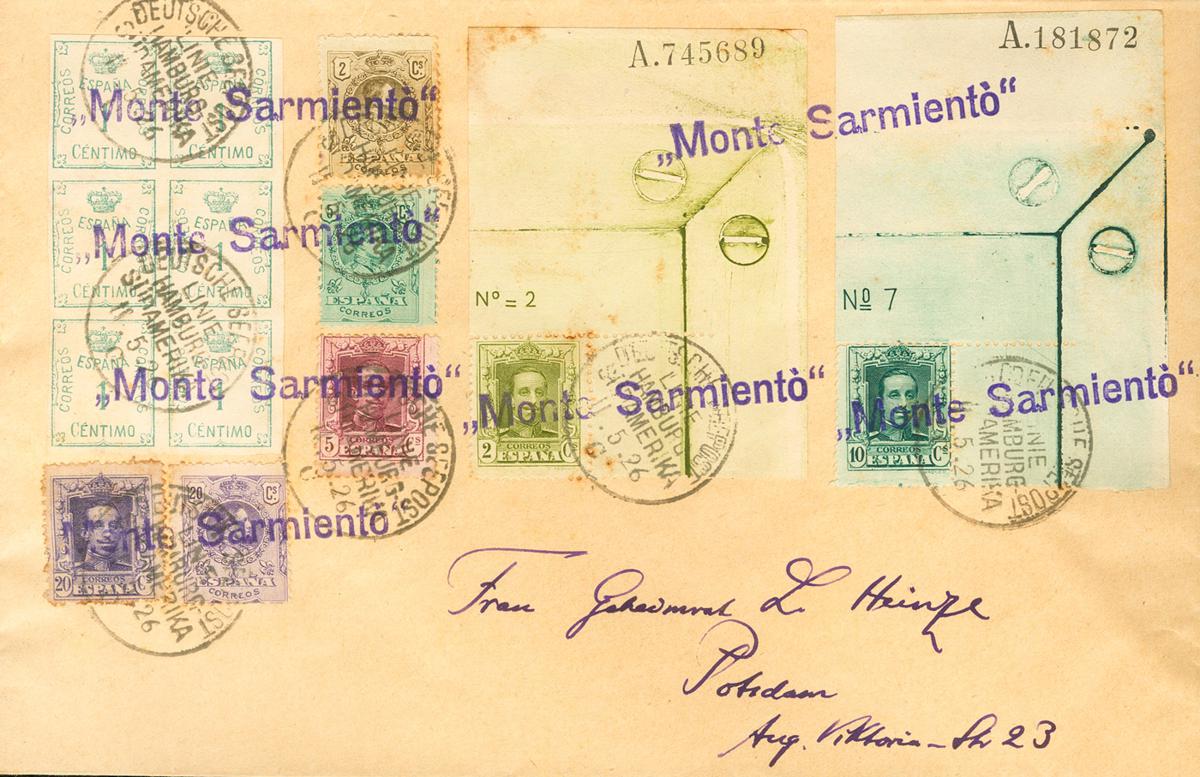 DEUTSCHE SEEPOST
LINIE
HAMBURG
SÜDAMERIKA
CORREOS
ESPAÑA
1
CÉNTIMO
ESPAÑA
1
CÉNTIMO
CORREOS
„Monte Sarmientò“
CORREOS
ESPAÑA
1
CÉNTIMO
ESPAÑA
1
CÉNTIMO
CORREOS
„Monte Sarmientò“
DEUTSCHE SEEPOST
LINIE
HAMBURG
SÜDAMERIKA
11 5
CORREOS
ESPAÑA
1
CÉNTIMO
ESPAÑA
1
CÉNTIMO
CORREOS
„Monte Sarmientò“
2 Cs
ESPAÑA
CORREOS
5 Cs
ESPAÑA
CORREOS
CORREOS
5 Cs
ESPAÑA
5.26
A.745689
Nº = 2
CORREOS
2 Cs
ESPAÑA
„Monte Sarmientò“
5.26
A.181872
„Monte Sarmientò“
Nº 7
CORREOS
10 Cs
ESPAÑA
„Monte Sarmientò“
LINIE
HAMBURG
5.26
CORREOS
20 Cs
ESPAÑA
20 Cs
ESPAÑA
CORREOS
Monte Sarmientò“
Frau Geheimrat L. Heinze
Potsdam
Aug. Viktoria-Str 23